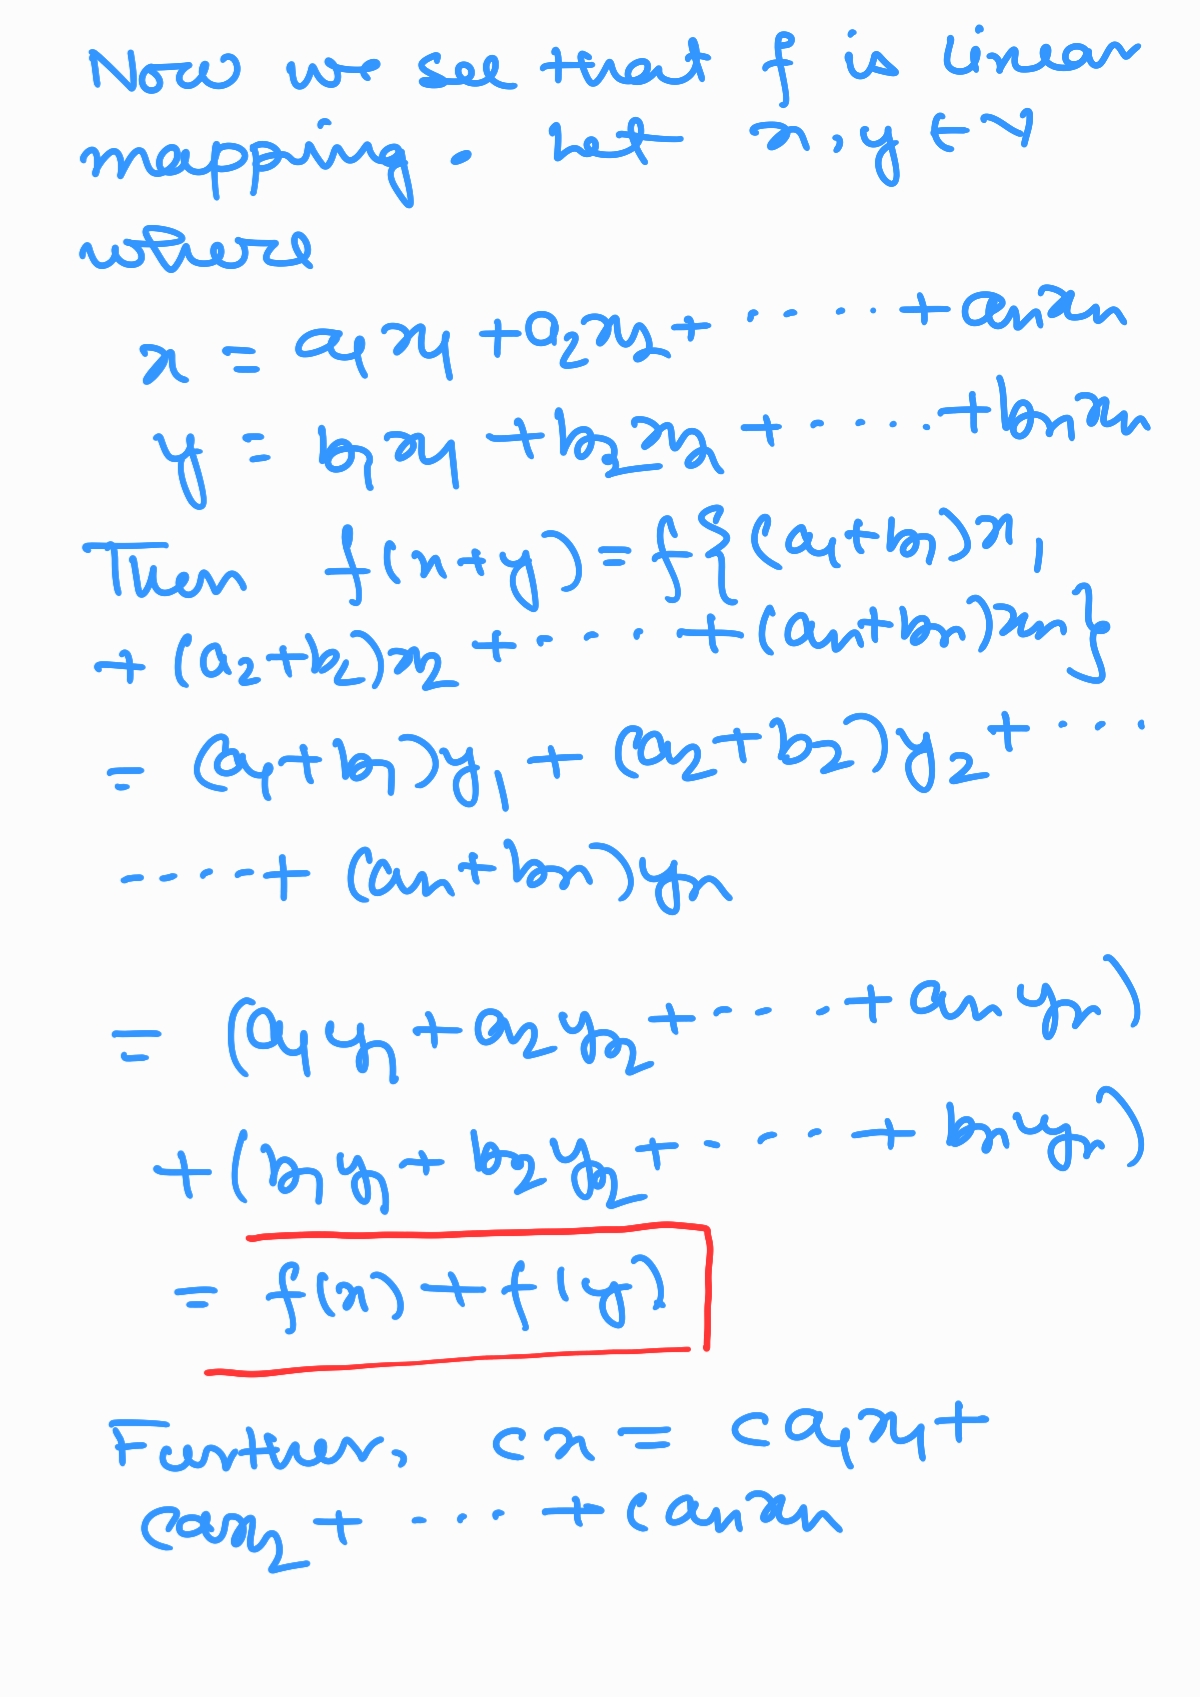 Now we see that f is linear
mapping. Let x, y ∈ V
where
x = a₁x₁ + a₂x₂ + ..... + aₙxₙ
y = b₁x₁ + b₂x₂ + ..... + bₙxₙ
Then f(x+y) = f{(a₁+b₁)x₁
+ (a₂+b₂)x₂ + .... + (aₙ+bₙ)xₙ}
= (a₁+b₁)y₁ + (a₂+b₂)y₂ + ...
.... + (aₙ+bₙ)yₙ
= (a₁y₁ + a₂y₂ + .... + aₙyₙ)
+ (b₁y₁ + b₂y₂ + .... + bₙyₙ)
= f(x) + f(y)
Further, cx = ca₁x₁ +
ca₂x₂ + .... + caₙxₙ